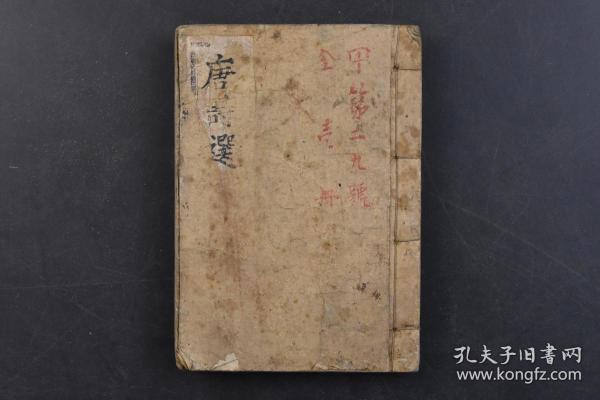 甲第二九號
全壹冊
唐詩選
孔夫子旧书网
www.kongfz.com